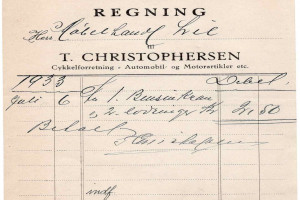 REGNING
Herr Møbelhandl. Lie
til
T. CHRISTOPHERSEN
Cykkelforretning - Automobil- og Motorartikler etc.
1933 Debet
Juli 6 1 Bensinkran
2 Lodninger Kr 50
Betalt
T. Christophersen
indf